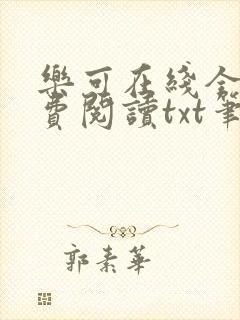 樂可在綫全
費閱讀txt筆
郭素華